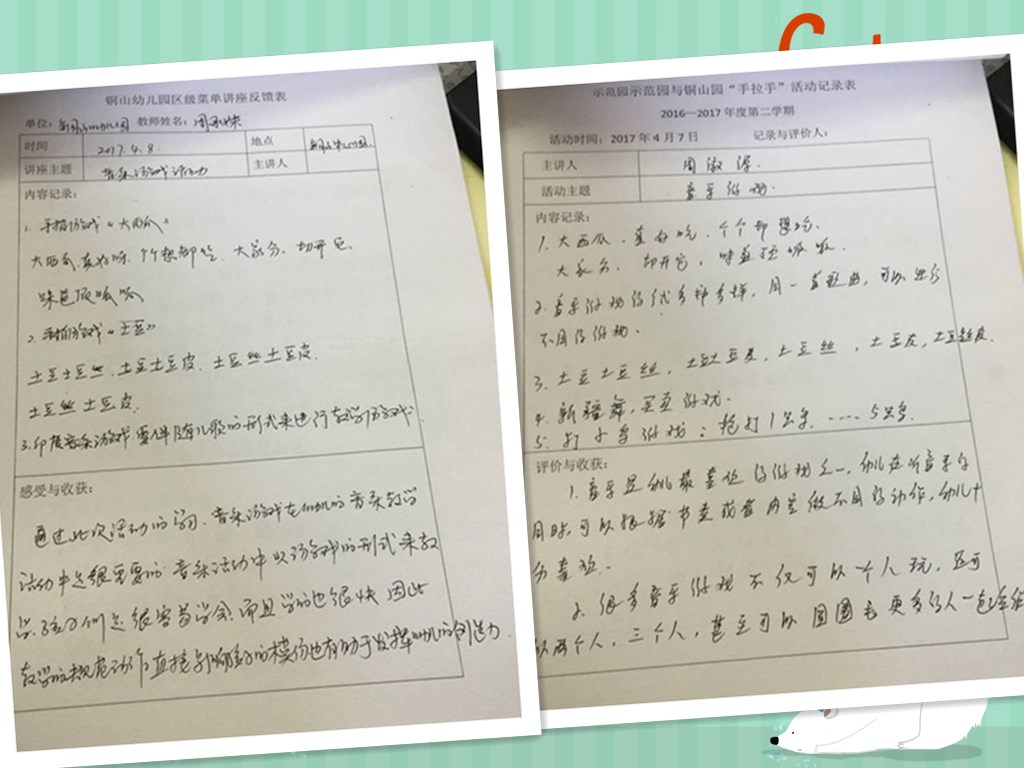 铜山幼儿园区级菜单讲座反馈表
单位: 教师姓名:
时间 2017.4.8. 地点
讲座主题 音乐游戏活动 主讲人
内容记录:
1. 手指游戏《大西瓜》
大西瓜、真好吃、个个想都吃、大家分、切开它、
味道顶呱呱
2. 手指游戏《土豆》
土豆土豆丝、土豆土豆皮、土豆丝土豆皮.
土豆丝土豆皮.
3. 音乐游戏需伴随儿歌的形式来进行教学游戏
感受与收获:
通过此次活动的学习、音乐游戏在幼儿的音乐教学
活动中是很重要的 音乐活动中以游戏的形式来教
学、孩子们是很容易学会而且学的也很快 因此
教学的规范动作直接影响的模仿也有助于发挥幼儿的创造力.
示范园示范园与铜山园“手拉手”活动记录表
2016—2017 年度第二学期
活动时间: 2017 年 4 月 7 日 记录与评价人:
主讲人 周
活动主题 音乐游戏.
内容记录:
1. 大西瓜、真好吃、个个都想吃.
大家分、切开它, 味道顶呱呱.
2. 音乐游戏形式多种多样, 用一首歌曲, 可以
不同的游戏.
3. 土豆土豆丝, 土豆土豆皮, 土豆丝, 土豆皮, 土豆丝皮.
4. 新疆舞, 买卖游戏.
5. 打小鸟游戏: 枪打1只鸟. ..... 5只鸟.
评价与收获:
1. 音乐是幼儿最喜欢的游戏之一, 幼儿在听音乐的
同时可以根据节奏或者内容做不同的动作, 幼儿十
分喜欢.
2. 很多音乐游戏不仅可以一个人玩, 还可
以两个人, 三个人, 甚至可以围圈更多的人一起